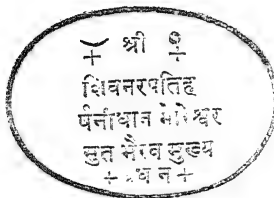 श्री
शिवनरपतिह
र्षनीधान मोरेश्वर
सुत भैरव मुख्य